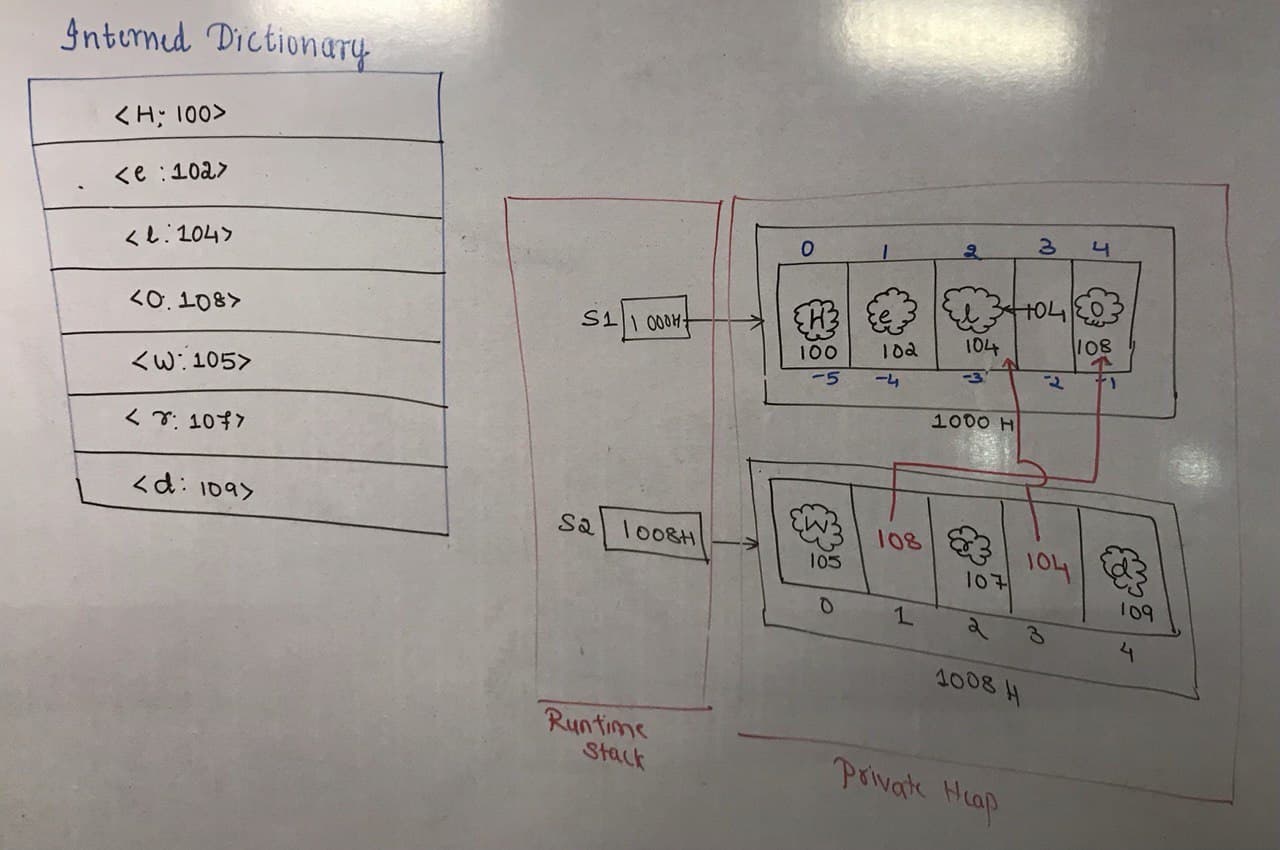 Interned Dictionary
<H: 100>
<e : 102>
<l : 104>
<O: 108>
<W: 105>
<r: 107>
<d: 109>
0 1 2 3 4
S1 1000H
H e l 104 O
100 102 104 108
-5 -4 -3 -2 -1
1000 H
S2 1008H
W 108 r 104 d
105 107 109
0 1 2 3 4
1008 H
Runtime
Stack
Private Heap